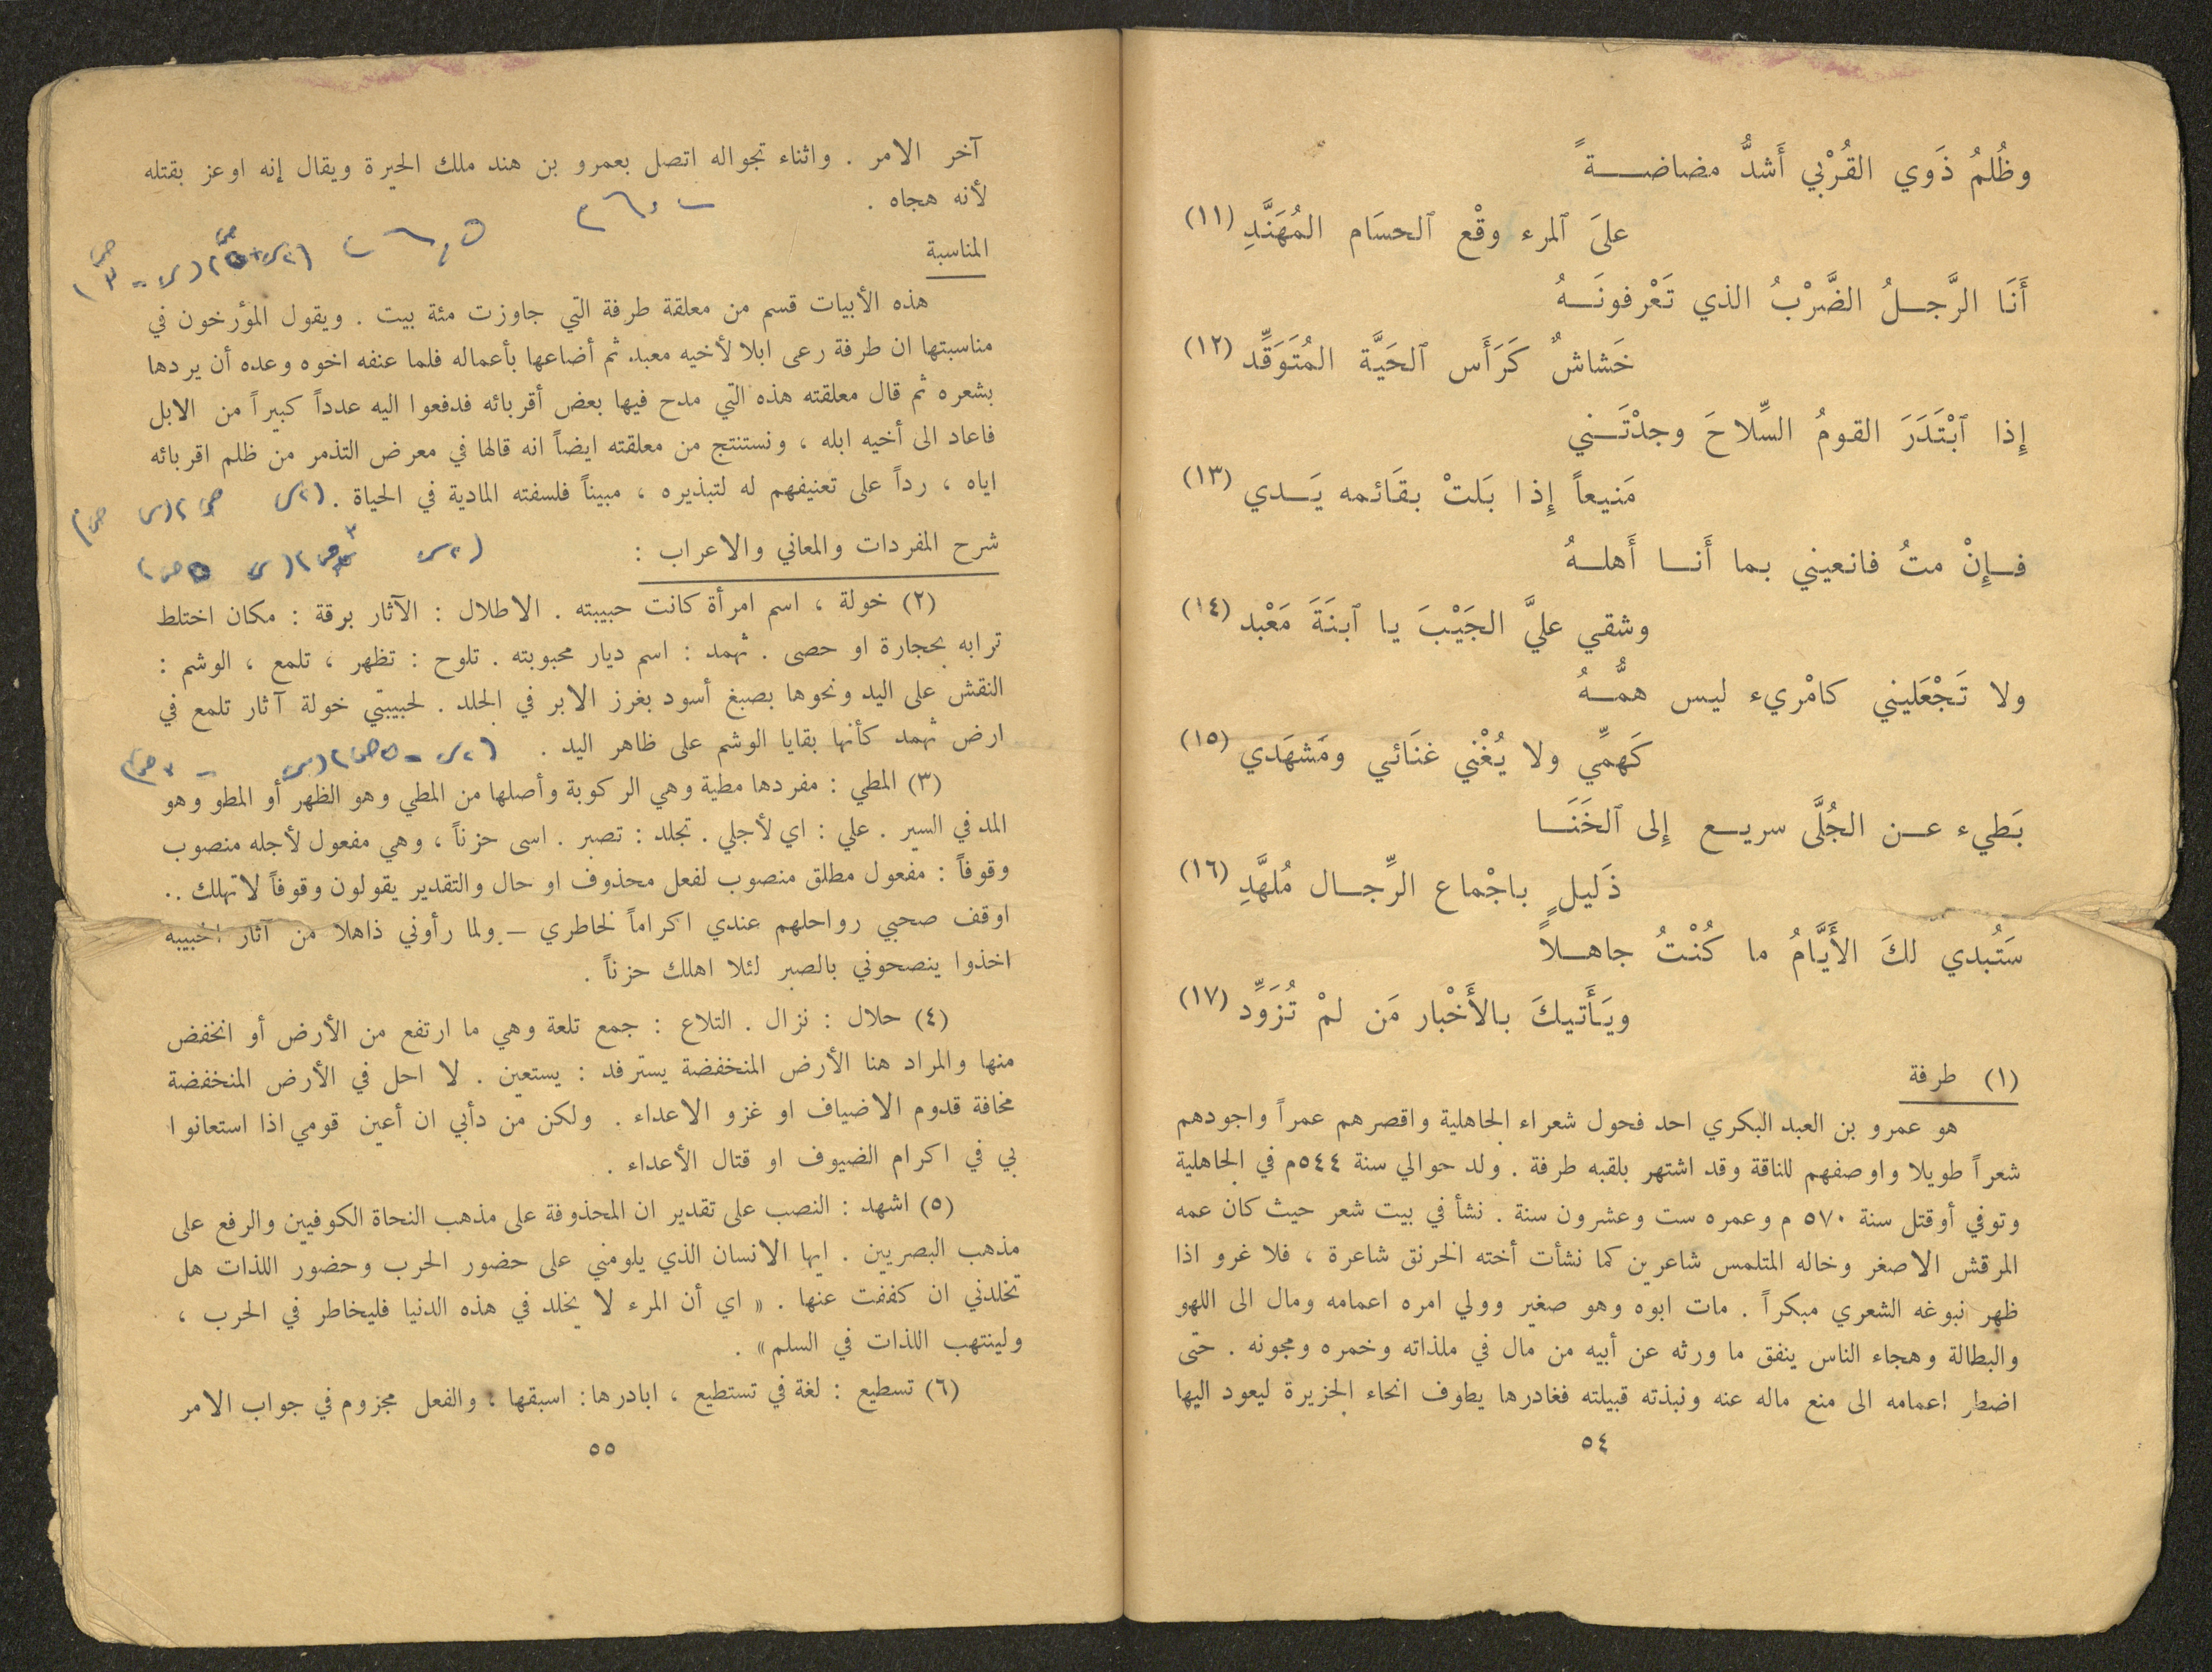 وظُلمُ ذَوي القُرْبي أَشدُّ مضاضـــةً
علىَ ٱلمرء وقْع ٱلحسَام المُهَنَّدِ (١١)
أَنَا الرَّجـلُ الضَّرْبُ الذي تَعْرفونَـهُ
خَشاشٌ كَرَأَس ٱلحَيَّة المُتَوَقِّد (١٢)
إِذا ٱبْتَدَرَ القومُ السِّلاحَ وجدْتَـني
مَنيعاً إِذا بَلتْ بقَائمه يَـدي (١٣)
فـإِنْ متُ فانعيني بما أَنـا أَهلـهُ
وشقي عليَّ الجَيْبَ يا ٱبنَةَ مَعْبد (١٤)
ولا تَجْعَليني كامْريء ليس همُّـهُ
كَهمِّي ولا يُغْني غنَائي ومَشهَدي (١٥)
بَطيء عـن الجُلَّى سريـع إِلى ٱلخَنَـا
ذَليلٍ باجْماع الرِّجـال مُلهَّدِ (١٦)
سَتُبدي لكَ الأَيَّامُ ما كُنْتُ جاهـلاً
ويَـأَتيكَ بـالأَخْبار مَن لمْ تُزَوِّد (١٧)
(١) طرفة
هو عمرو بن العبد البكري احد فحول شعراء الجاهلية واقصرهم عمراً واجودهم
شعراً طويلا واوصفهم للناقة وقد اشتهر بلقبه طرفة . ولد حوالي سنة ٥٤٤م في الجاهلية
وتوفي أوقتل سنة ٥٧٠ م وعمره ست وعشرون سنة . نشأ في بيت شعر حيث كان عمه
المرقش الاصغر وخاله المتلمس شاعرين كما نشأت أخته الخرنق شاعرة ، فلا غرو اذا
ظهر نبوغه الشعري مبكراً . مات ابوه وهو صغير وولي امره اعمامه ومال الى اللهو
والبطالة وهجاء الناس ينفق ما ورثه عن أبيه من مال في ملذاته وخمره ومجونه . حتى
اضطر اعمامه الى منع ماله عنه ونبذته قبيلته فغادرها يطوف انحاء الجزيرة ليعود اليها
٥٤
آخر الامر . واثناء تجواله اتصل بعمرو بن هند ملك الحيرة ويقال إنه اوعز بقتله
لأنه هجاه .
المناسبة
هذه الأبيات قسم من معلقة طرفة التي جاوزت مئة بيت . ويقول المؤرخون في
مناسبتها ان طرفة رعى ابلا لأخيه معبد ثم أضاعها بأعماله فلما عنفه اخوه وعده أن يردها
بشعره ثم قال معلقته هذه التي مدح فيها بعض أقربائه فدفعوا اليه عدداً كبيراً من الابل
فاعاد الى أخيه ابله ، ونستنتج من معلقته ايضاً انه قالها في معرض التذمر من ظلم اقربائه
اياه ، رداً على تعنيفهم له لتبذيره ، مبيناً فلسفته المادية في الحياة .
شرح المفردات والمعاني والاعراب :
(٢) خولة ، اسم امرأة كانت حبيبته . الاطلال : الآثار برقة : مكان اختلط
ترابه بحجارة او حصى . ثهمد : اسم ديار محبوبته . تلوح : تظهر ، تلمع ، الوشم :
النقش على اليد ونحوها بصبغ أسود بغرز الابر في الجلد . لحبيبتي خولة آثار تلمع في
ارض ثهمد كأنها بقايا الوشم على ظاهر اليد .
(٣) المطي : مفردها مطية وهي الركوبة وأصلها من المطي وهو الظهر أو المطو وهو
المد في السير . علي : اي لأجلي . تجلد : تصبر . اسى حزناً ، وهي مفعول لأجله منصوب
وقوفاً : مفعول مطلق منصوب لفعل محذوف او حال والتقدير يقولون وقوفاً لاتهلك ..
اوقف صحبي رواحلهم عندي اكراماً لخاطري – ولما رأوني ذاهلا من آثار الحبيبه
اخذوا ينصحوني بالصبر لئلا اهلك حزناً .
(٤) حلال : نزال . التلاع : جمع تلعة وهي ما ارتفع من الأرض أو انخفض
منها والمراد هنا الأرض المنخفضة يسترفد : يستعين . لا احل في الأرض المنخفضة
مخافة قدوم الاضياف او غزو الاعداء . ولكن من دأبي ان أعين قومي اذا استعانوا
بي في اكرام الضيوف او قتال الأعداء .
(٥) اشهد : النصب على تقدير ان المحذوفة على مذهب النحاة الكوفيين والرفع على
مذهب البصريين . ايها الانسان الذي يلومني على حضور الحرب وحضور اللذات هل
تخلدني ان كففت عنها . « اي أن المرء لا يخلد في هذه الدنيا فليخاطر في الحرب ،
ولينتهب اللذات في السلم» .
(٦) تسطيع : لغة في تستطيع ، ابادرها: اسبقها ، والفعل مجزوم في جواب الامر
٥٥